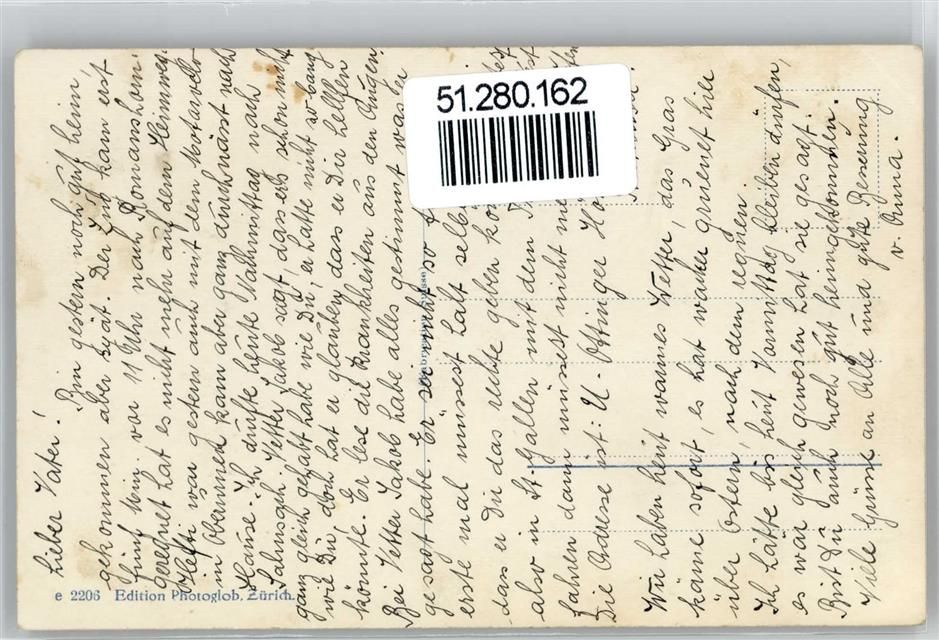 Lieber Vater!
Bin gestern noch gut heim
gekommen aber spät. Der Zug kam erst
fünf min. vor 11 Uhr nach Romanshorn.
geregnet hat es nicht mehr auf dem Heimweg.
Hefti war gestern auch mit dem Motorvelo
in Oberuzwil kam aber ganz durchnässt nach
Hause. Ich durfte heute Vormittag nach
Vetter Jakob sagt, dass ers schon mal
ganz gleich gehabt habe wie Du, er hatte nicht so bang
wie Du doch hat er glauben, dass er Dir helfen
könnte. Er lese die Krankheiten aus den Augen.
Bei Vetter Jakob habe alles gestimmt was er
gesagt habe. Er sei nicht so
erste mal müssest halt selb
dass er Dir das rechte geben kö
also in St. Gallen mit dem
fahren dann müssest nicht me
Die Adresse ist: U. Ottinger
Wir haben heut warmes Wetter, das Gras
käme sofort, es hat wacker gruenet hier
über Ostern, nach dem regnen.
Ich hätte bis heut Vormittag bleiben dürfen,
es war gleich gewesen hat sie gesagt.
Bist Du auch noch gut heimgekommen.
Viele Grüsse an Alle und gute Besserung
v. Anna.
51.280.162
e 2206 Edition Photoglob, Zürich.